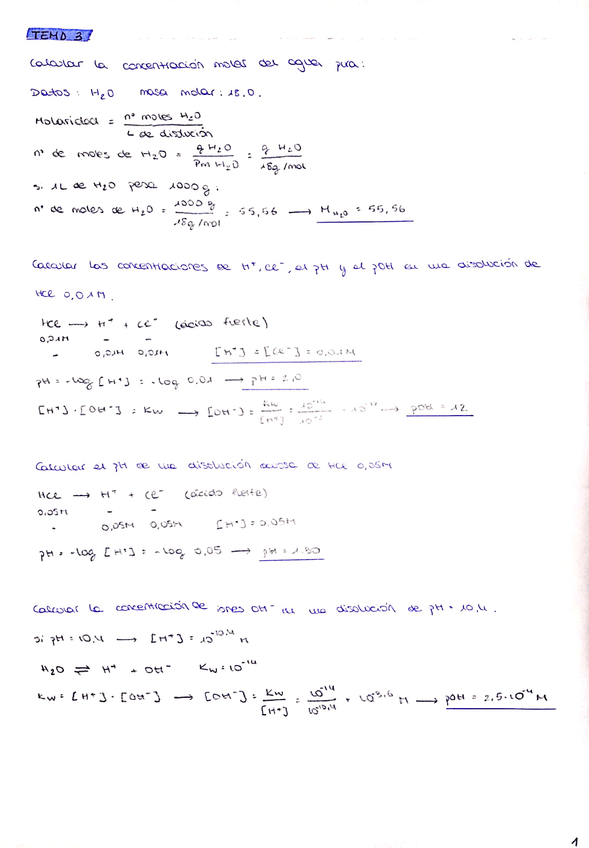 TEMA 3
Calcular la concentración molar del agua pura:
Datos: H₂O masa molar: 18,0.
Molaridad = nº moles H₂O / L de disolución
nº de moles de H₂O = g H₂O / Pm H₂O = g H₂O / 18g/mol
si 1L de H₂O pesa 1000g:
nº de moles de H₂O = 1000 g / 18g/mol = 55,56 → M H₂O = 55,56
Calcular las concentraciones de H⁺, Cl⁻, el pH y el pOH en una disolución de
HCl 0,01M.
HCl → H⁺ + Cl⁻ (ácido fuerte)
0,01M - -
- 0,01M 0,01M [H⁺] = [Cl⁻] = 0,01M
pH = -log [H⁺] = -log 0,01 → pH = 2,0
[H⁺]·[OH⁻] = Kw → [OH⁻] = Kw / [H⁺] = 10⁻¹⁴ / 10⁻² = → pOH = 12
Calcular el pH de una disolución acuosa de HCl 0,05M
HCl → H⁺ + Cl⁻ (ácido fuerte)
0,05M - -
- 0,05M 0,05M [H⁺] = 0,05M
pH = -log [H⁺] = -log 0,05 → pH = 1.80
Calcular la concentración de iones OH⁻ en una disolución de pH = 10,4.
si pH = 10,4 → [H⁺] = 10⁻¹⁰·⁴ M
H₂O ⇌ H⁺ + OH⁻ Kw = 10⁻¹⁴
Kw = [H⁺]·[OH⁻] → [OH⁻] = Kw / [H⁺] = 10⁻¹⁴ / 10⁻¹⁰·⁴ = 10⁻³·⁶ M → pOH = 2,5·10⁻⁴ M
1